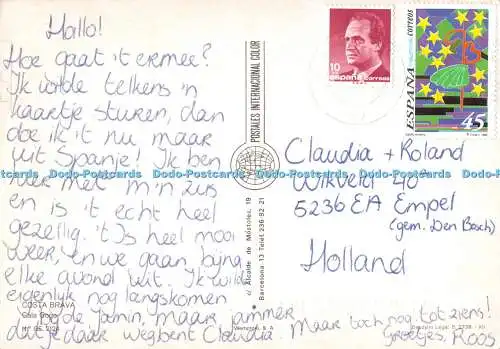 Hallo!
Hoe gaat 't ermee?
Ik wilde telkens 'n
kaartje sturen, dan
doe ik 't nu maar
uit Spanje! Ik ben
hier met m'n zus
en is 't echt heel
gezellig. 't Is heel mooi
weer, en we gaan bijna
elke avond uit. Ik wilde
eigenlijk nog langskomen
bij de Jamin, maar jammer
dat je daar wegbent Claudia. Maar toch nog tot ziens!
Groetjes, Roos
COSTA BRAVA
Cala Gogo
POSTALES INTERNACIONAL COLOR
c/ Alcalde de Móstoles, 19
Barcelona-13 Telef. 236 92 21
10
España Correos
CORREOS
ESPAÑA
45
Claudia + Roland
Wikveld 40
5236 EA Empel
(gem. Den Bosch)
Holland
Dodo-Postcards Dodo-Postcards Dodo-Postcards Dodo-Postcards Dodo-Postcards